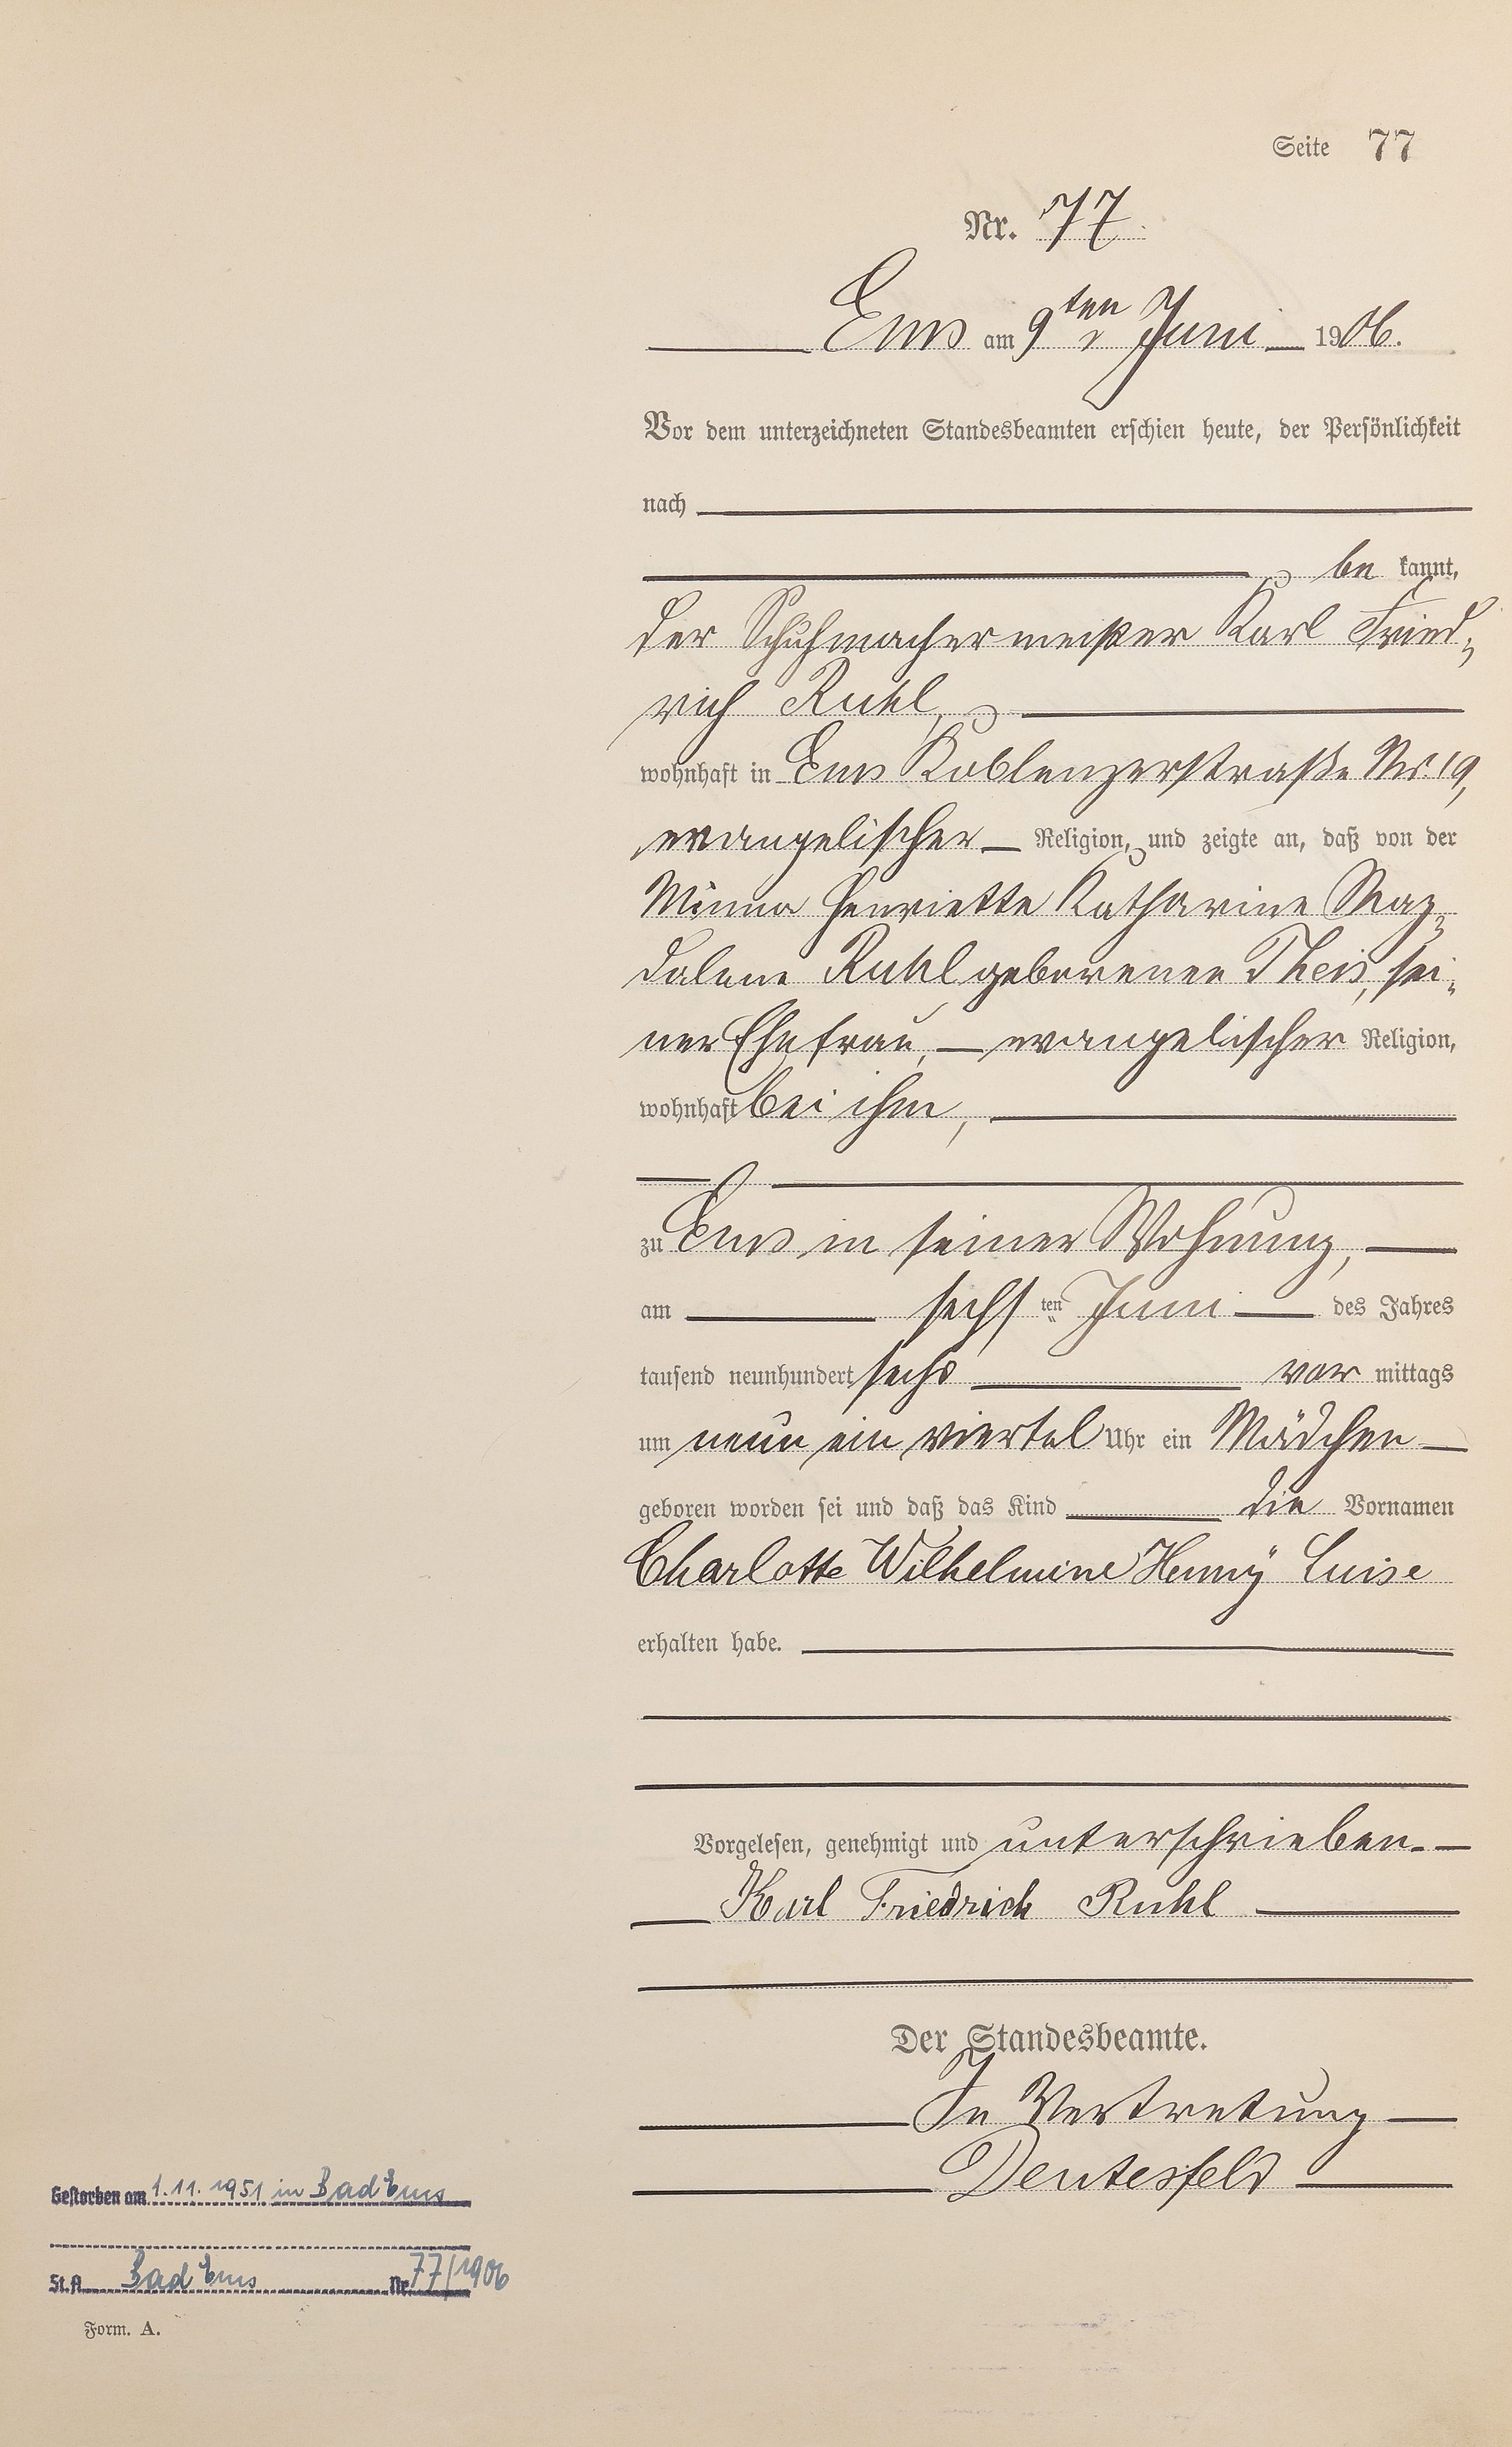 Seite 77
Nr. 77.
Ems am 9ten Juni 1906.
Vor dem unterzeichneten Standesbeamten erschien heute, der Persönlichkeit
nach
be kannt,
der Schuhmachermeister Karl Fried-
rich Ruhl,
wohnhaft in Ems Koblenzerstraße Nr. 19,
evangelischer Religion, und zeigte an, daß von der
Minna Henriette Katharine Mag-
dalene Ruhl geborenen Theis, sei-
ner Ehefrau, evangelischer Religion,
wohnhaft bei ihm,
zu Ems in seiner Wohnung,
am sechsten Juni des Jahres
tausend neunhundert sechs vor mittags
um neun ein viertel Uhr ein Mädchen
geboren worden sei und daß das Kind die Vornamen
Charlotte Wilhelmine Henny Luise
erhalten habe.
Vorgelesen, genehmigt und unterschrieben.
Karl Friedrich Ruhl
Der Standesbeamte.
In Vertretung
Deutesfeld
Gestorben am 1.11.1951 in Bad Ems
St.A. Bad Ems Nr. 77/1906
Form. A.